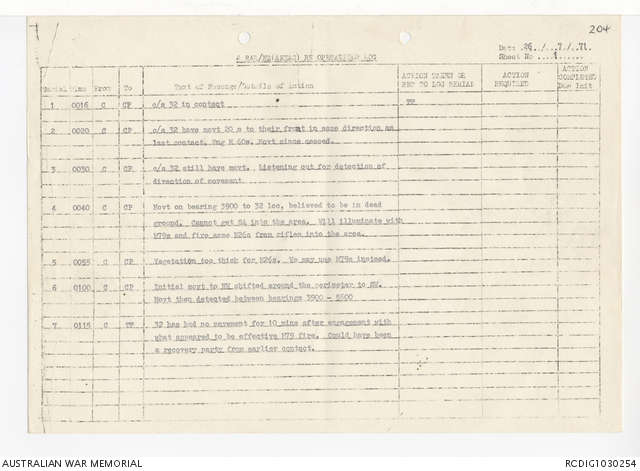 204
4 RAR/NZ(ANZAC) BN OPERATIONS LOG
Date 29 / 7 / 71
Sheet No 1
Serial Time From To Text of Message/Details of Action ACTION TAKEN OR REF TO LOG SERIAL ACTION REQUIRED ACTION COMPLETED Due Init
1 0016 C CP c/s 32 in contact TF
2 0020 C CP c/s 32 have movt 20 m to their front in same direction as
last contact. Eng M 60s. Movt since ceased.
3 0030 C CP c/s 32 still have movt. Listening out for detection of
direction of movement
4 0040 C CP Movt on bearing 3900 to 32 loc, believed to be in dead
ground. Cannot get SA into the area. Will illuminate with
M79s and fire some M26s from rifles into the area.
5 0055 C CP Vegetation too thick for M26s. We may use M79s instead.
6 0100 C CP Initial movt to NW shifted around the perimeter to SW.
Movt then detected between bearings 3500 - 5500
7 0115 C TF 32 has had no movement for 10 mins after engagement with
what appeared to be effective M79 fire. Could have been
a recovery party from earlier contact.
AUSTRALIAN WAR MEMORIAL
RCDIG1030254